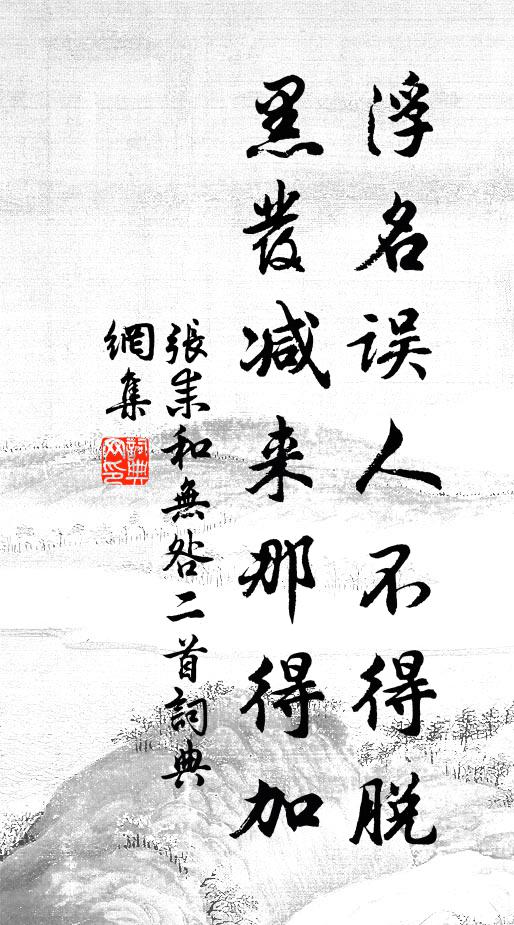 浮名误人不得脱
黑发减来那得加
張耒和無咎二首詞典
網集
詞典
网印